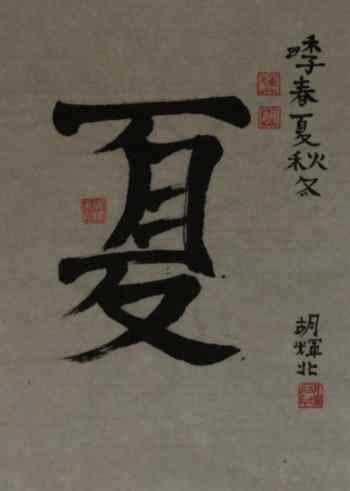 四季春夏秋冬
夏
胡輝北